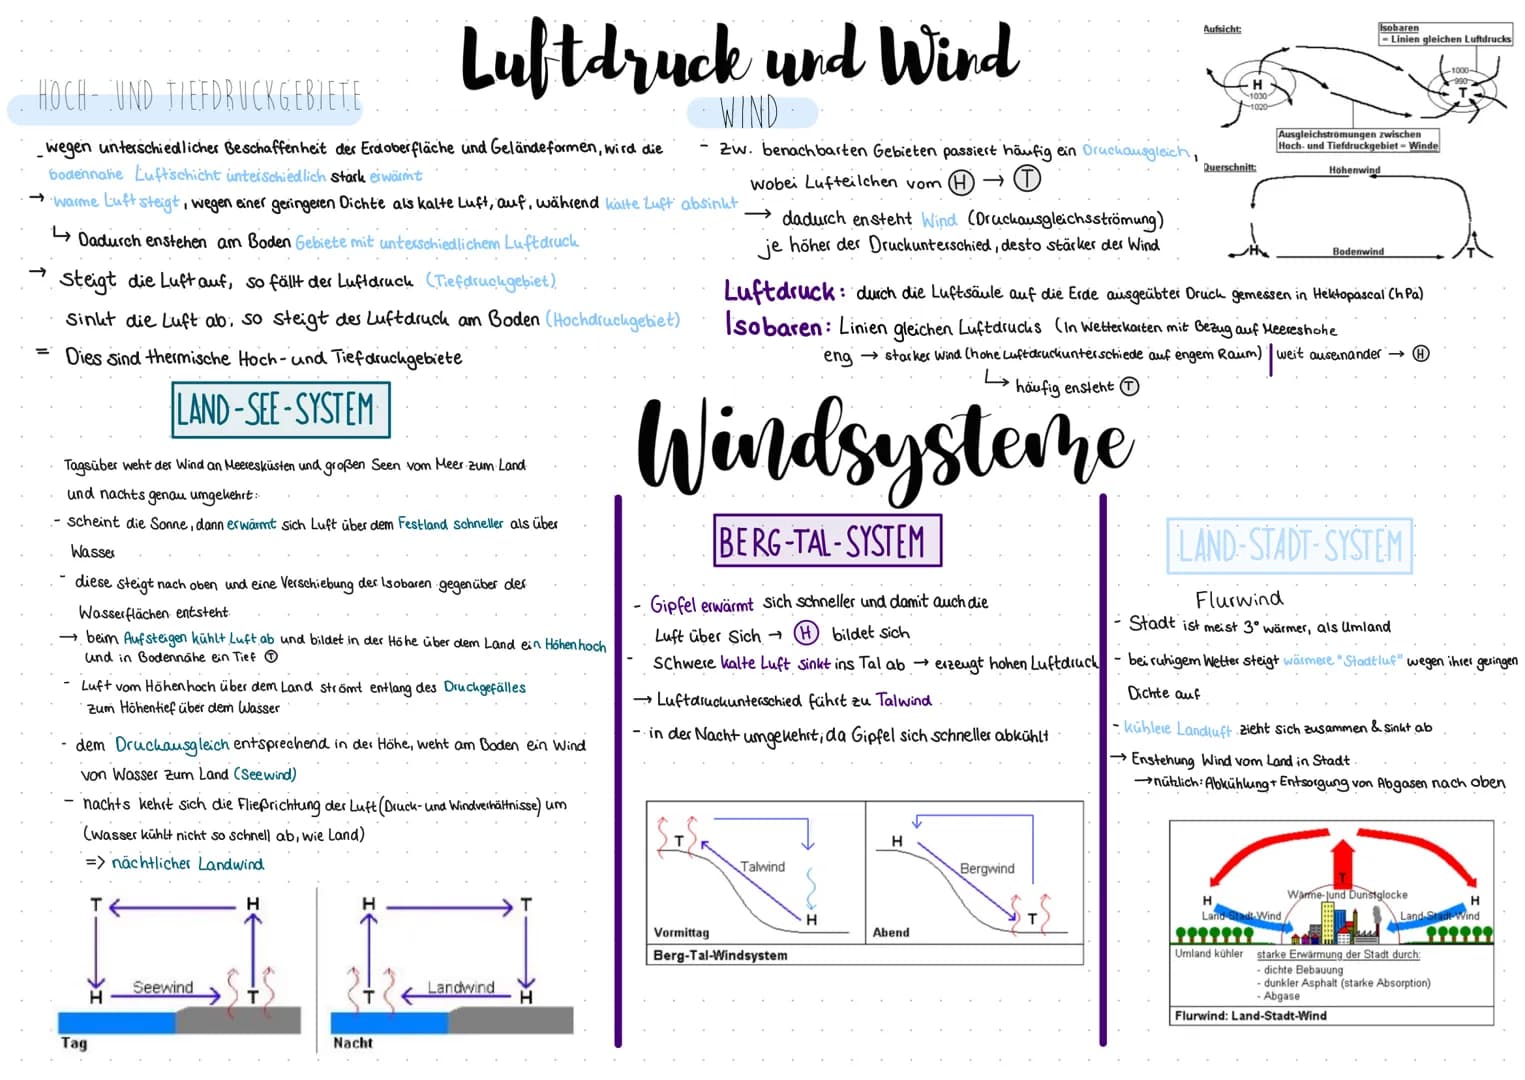 Luftdruck und Wind
HOCH- UND TIEFDRUCKGEBIETE
- wegen unterschiedlicher Beschaffenheit der Erdoberfläche und Geländeformen, wird die
bodennahe Luftschicht unterschiedlich stark erwärmt
→ warme Luft steigt, wegen einer geringeren Dichte als kalte Luft, auf, während kalte Luft absinkt
↳ Dadurch enstehen am Boden Gebiete mit unterschiedlichem Luftdruck
→ steigt die Luft auf, so fällt der Luftdruck (Tiefdruckgebiet)
sinkt die Luft ab, so steigt des Luftdruck am Boden (Hochdruckgebiet)
= Dies sind thermische Hoch- und Tiefdruckgebiete
WIND
- zw. benachbarten Gebieten passiert häufig ein Druckausgleich,
wobei Lufteilchen vom H → T
→ dadurch ensteht Wind (Druckausgleichsströmung)
je höher der Druckunterschied, desto stärker der Wind
Luftdruck: durch die Luftsäule auf die Erde ausgeübter Druck gemessen in Hektopascal (hPa)
Isobaren: Linien gleichen Luftdrucks (In Wetterkarten mit Bezug auf Meereshöhe
eng → starker Wind (hohe Luftdruckunterschiede auf engem Raum) | weit auseinander → H
↳ häufig ensteht T
Aufsicht:
Isobaren
= Linien gleichen Luftdrucks
H
1030
1020
1000
990
T
Ausgleichströmungen zwischen
Hoch- und Tiefdruckgebiet = Winde
Querschnitt:
Höhenwind
H
Bodenwind
T
Windsysteme
LAND-SEE-SYSTEM
Tagsüber weht der Wind an Meeresküsten und großen Seen vom Meer zum Land
und nachts genau umgekehrt:
- scheint die Sonne, dann erwärmt sich Luft über dem Festland schneller als über
Wasser
- diese steigt nach oben und eine Verschiebung der Isobaren gegenüber der
Wasserflächen entsteht
→ beim Aufsteigen kühlt Luft ab und bildet in der Höhe über dem Land ein Höhenhoch
und in Bodennähe ein Tief T
- Luft vom Höhenhoch über dem Land strömt entlang des Druckgefälles
zum Höhentief über dem Wasser
- dem Druckausgleich entsprechend in der Höhe, weht am Boden ein Wind
von Wasser zum Land (Seewind)
- nachts kehrt sich die Fließrichtung der Luft (Druck- und Windverhältnisse) um
(Wasser kühlt nicht so schnell ab, wie Land)
=> nächtlicher Landwind
T H
H Seewind T
Tag
H T
T Landwind H
Nacht
BERG-TAL-SYSTEM
- Gipfel erwärmt sich schneller und damit auch die
Luft über sich → H bildet sich
- schwere kalte Luft sinkt ins Tal ab → erzeugt hohen Luftdruck
→ Luftdruckunterschied führt zu Talwind
- in der Nacht umgekehrt, da Gipfel sich schneller abkühlt
T
Talwind
H
Vormittag
H
Bergwind
T
Abend
Berg-Tal-Windsystem
LAND-STADT-SYSTEM
Flurwind
- Stadt ist meist 3° wärmer, als Umland
- bei ruhigem Wetter steigt wärmere "Stadtluf" wegen ihrer geringen
Dichte auf
- kühlere Landluft zieht sich zusammen & sinkt ab
→ Enstehung Wind vom Land in Stadt
→ nützlich: Abkühlung + Entsorgung von Abgasen nach oben
T
Wärme- und Dunstglocke
H
H
Land-Stadt-Wind
Land-Stadt-Wind
Umland kühler
starke Erwärmung der Stadt durch:
- dichte Bebauung
- dunkler Asphalt (starke Absorption)
- Abgase
Flurwind: Land-Stadt-Wind